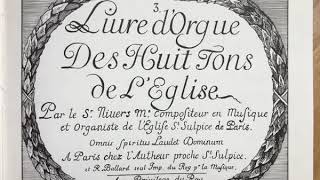 3.
Livre d'Orgue
Des Huit Tons
de L'Eglise
Par le Sr. Nivers Me. Compositeur en Musique
et Organiste de l'Eglise St. Sulpice de Paris.
Omnis spiritus Laudet Dominum
A Paris chez l'Autheur proche St. Sulpice.
et R. Ballard seul Imp. du Roy pr. la Musique,
Avec Privilege du Roy